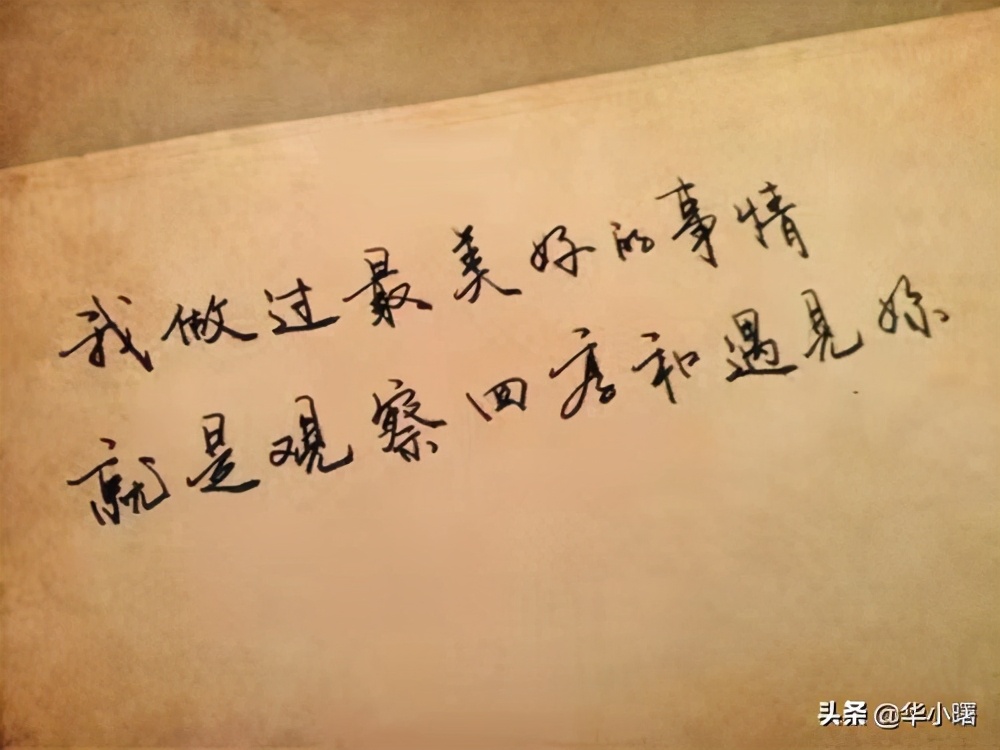 我做过最美好的事情
就是观察四季和遇见妳
头条 @华小曙